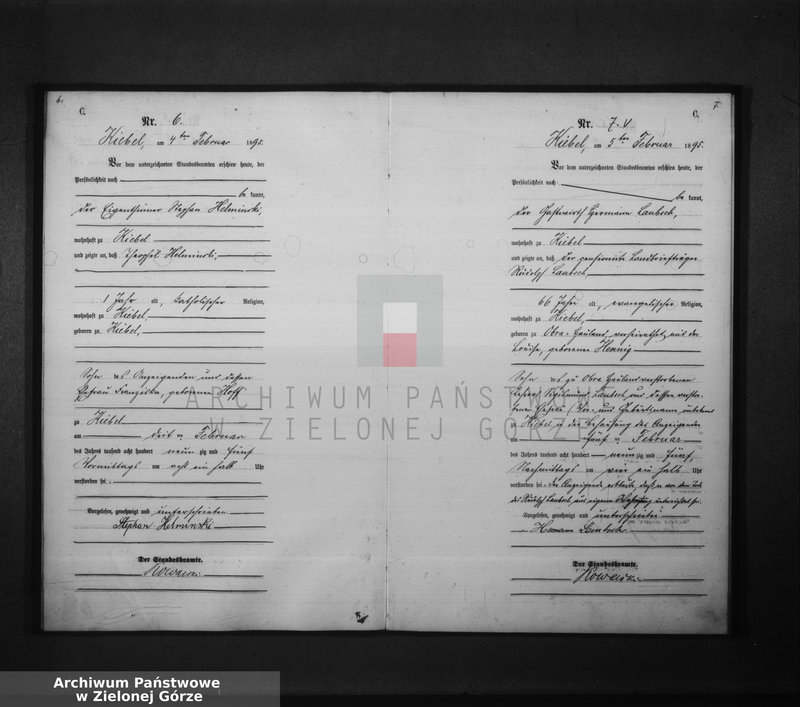 6.
C.
Nr. 6.
Kiebel, am 4ten Februar 1895.
Vor dem unterzeichneten Standesbeamten erschien heute, der
Persönlichkeit nach
be kannt,
der Eigenthümer Stephan Helminski,
wohnhaft zu Kiebel
und zeigte an, daß Theophil Helminski,
1 Jahr alt, katholischer Religion,
wohnhaft zu Kiebel,
geboren zu Kiebel,
Sohn des Anzeigenden und dessen
Ehefrau Franziska, geborenen Hoff
zu Kiebel
am Februar
des Jahres tausend acht hundert neun zig und fünf
Vormittags um acht ein halb Uhr
verstorben sei.
Vorgelesen, genehmigt und unterschrieben
Stephan Helminski
Der Standesbeamte.
7.
C.
Nr. 7.
Kiebel, am 5ten Februar 1895.
Vor dem unterzeichneten Standesbeamten erschien heute, der
Persönlichkeit nach
be kannt,
der Gastwirth Hermann
wohnhaft zu Kiebel
und zeigte an, daß der pensionirte Landbriefträger
Rudolph
66 Jahr alt, evangelischer Religion,
wohnhaft zu Kiebel,
geboren zu Obra-Hauland, verheirathet mit der
Louise, geborenen Hennig
Sohn des zu Obra Hauland verstorbenen
und dessen
zu Kiebel in der Behausung des Anzeigenden
am fünf ten Februar
des Jahres tausend acht hundert neun zig und fünf,
Nachmittags um vier ein halb Uhr
verstorben sei. Der Anzeigende erklärte, daß er von dem Tode
des Rudolph aus eigener unterrichtet sei.
Vorgelesen, genehmigt und unterschrieben
Hermann
Der Standesbeamte.
ARCHIWUM PAŃSTWOWE
W ZIELONEJ GÓRZE
Archiwum Państwowe
w Zielonej Górze